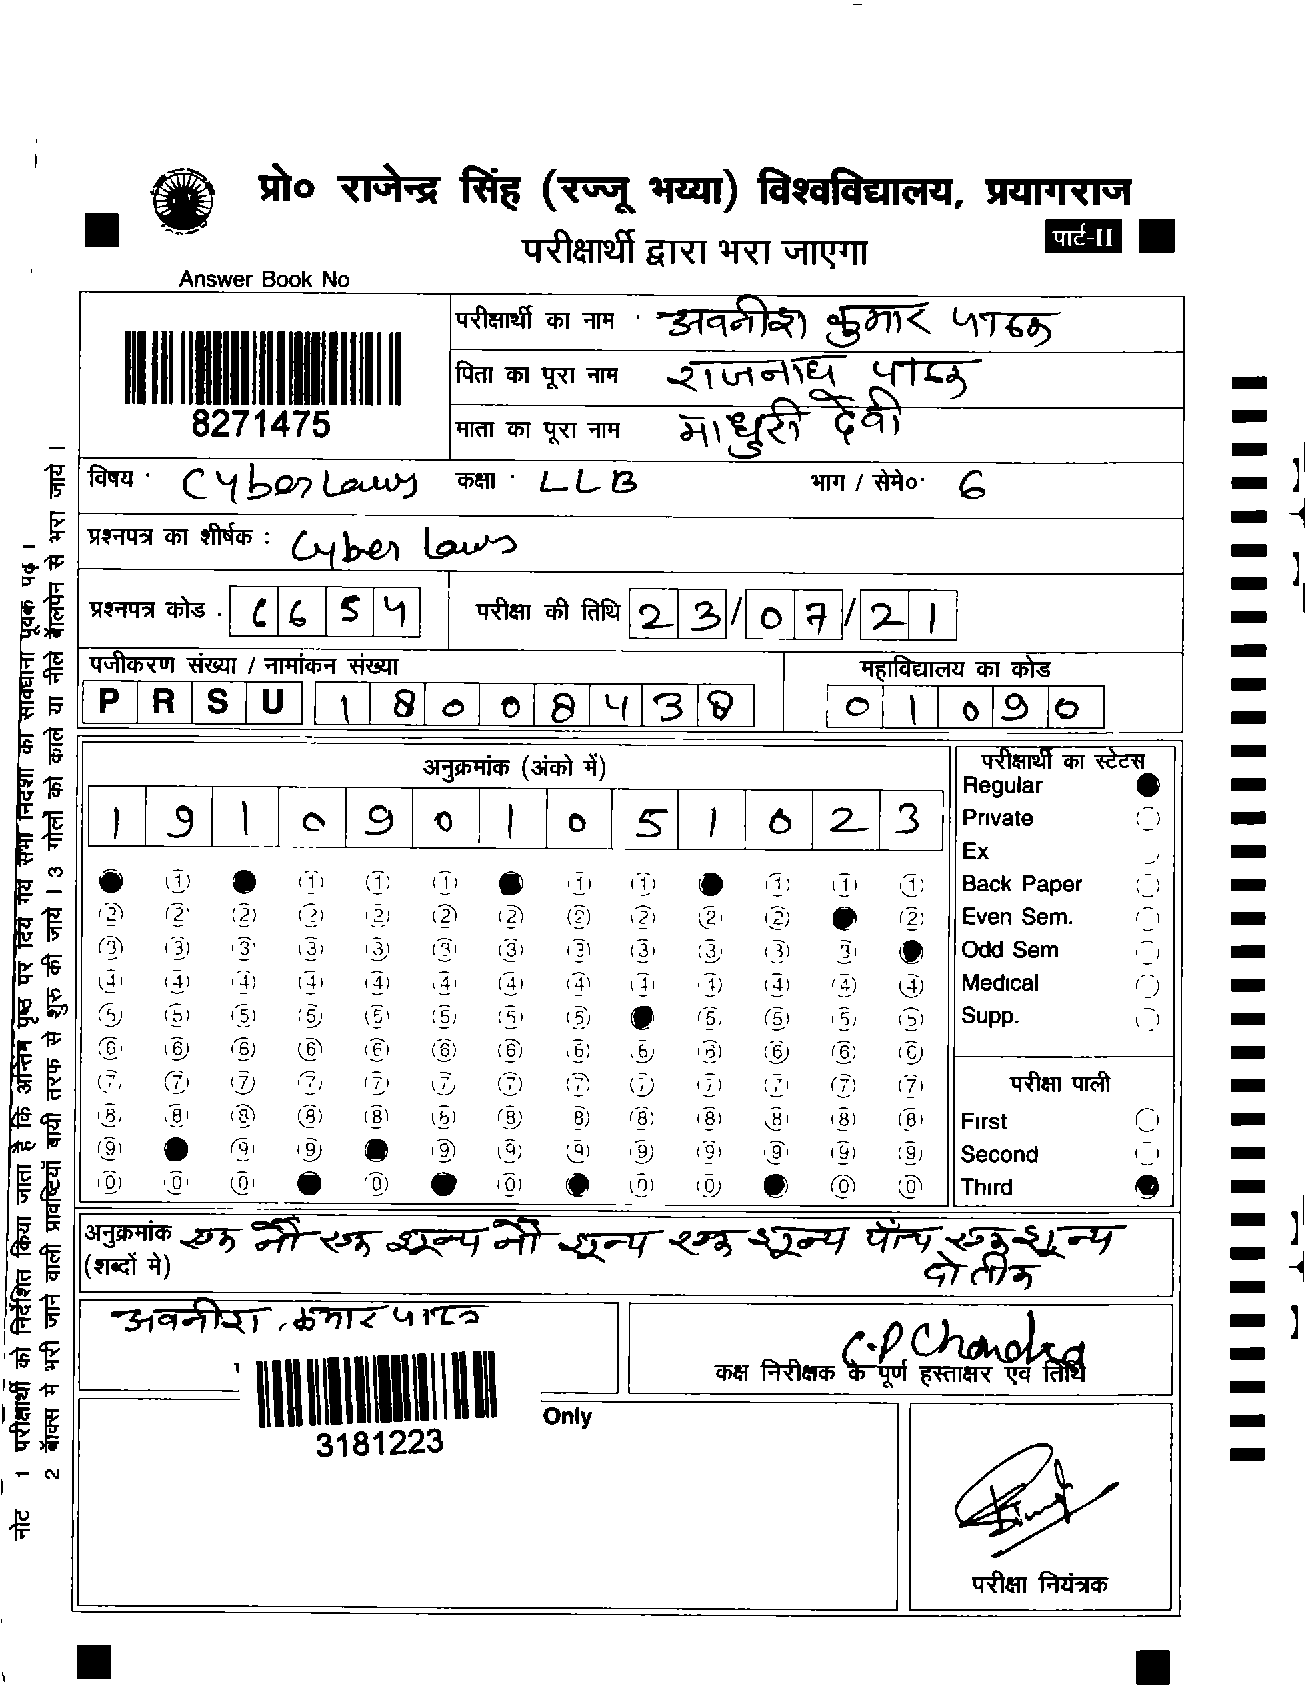 प्रो० राजेन्द्र सिंह (रज्जू भय्या) विश्वविद्यालय, प्रयागराज
पार्ट-II
परीक्षार्थी द्वारा भरा जाएगा
Answer Book No
8271475
परीक्षार्थी का नाम अवनीश कुमार पाठक
पिता का पूरा नाम राजनाथ पाठक
माता का पूरा नाम माधुरी देवी
विषय Cyber Laws कक्षा LLB भाग / सेमे० 6
प्रश्नपत्र का शीर्षक : Cyber laws
प्रश्नपत्र कोड C654 परीक्षा की तिथि 23/07/21
पजीकरण संख्या / नामांकन संख्या महाविद्यालय का कोड
PRSU 18008438 01090
अनुक्रमांक (अंको में)
1 9 1 0 9 0 1 0 5 1 0 2 3
1 1 1 1 1 1 1 1 1
2 2 2 2 2 2 2 2 2 2 2 2
3 3 3 3 3 3 3 3 3 3 3 3
4 4 4 4 4 4 4 4 4 4 4 4 4
5 5 5 5 5 5 5 5 5 5 5 5
6 6 6 6 6 6 6 6 6 6 6 6 6
7 7 7 7 7 7 7 7 7 7 7 7 7
8 8 8 8 8 8 8 8 8 8 8 8 8
9 9 9 9 9 9 9 9 9 9 9
0 0 0 0 0 0 0 0 0
परीक्षार्थी का स्टेटस
Regular
Private
Ex
Back Paper
Even Sem.
Odd Sem
Medical
Supp.
परीक्षा पाली
First
Second
Third
अनुक्रमांक एक नौ एक शून्य नौ शून्य एक शून्य पाँच एक शून्य
(शब्दों मे) दो तीन
अवनीश कुमार पाठक
C.P Chandra
कक्ष निरीक्षक के पूर्ण हस्ताक्षर एवं तिथि
3181223
Only
परीक्षा नियंत्रक
नोट 1 परीक्षार्थी को निर्देशित किया जाता है कि अन्तिम पृष्ठ पर दिये गये सभी निर्देशों को सावधानी पूर्वक पढ़े ।
2 बॉक्स मे भरी जाने वाली प्रविष्टियां बायी तरफ से शुरु की जाये । 3 गोलो को काले या नीले बॉलपेन से भरा जाये ।